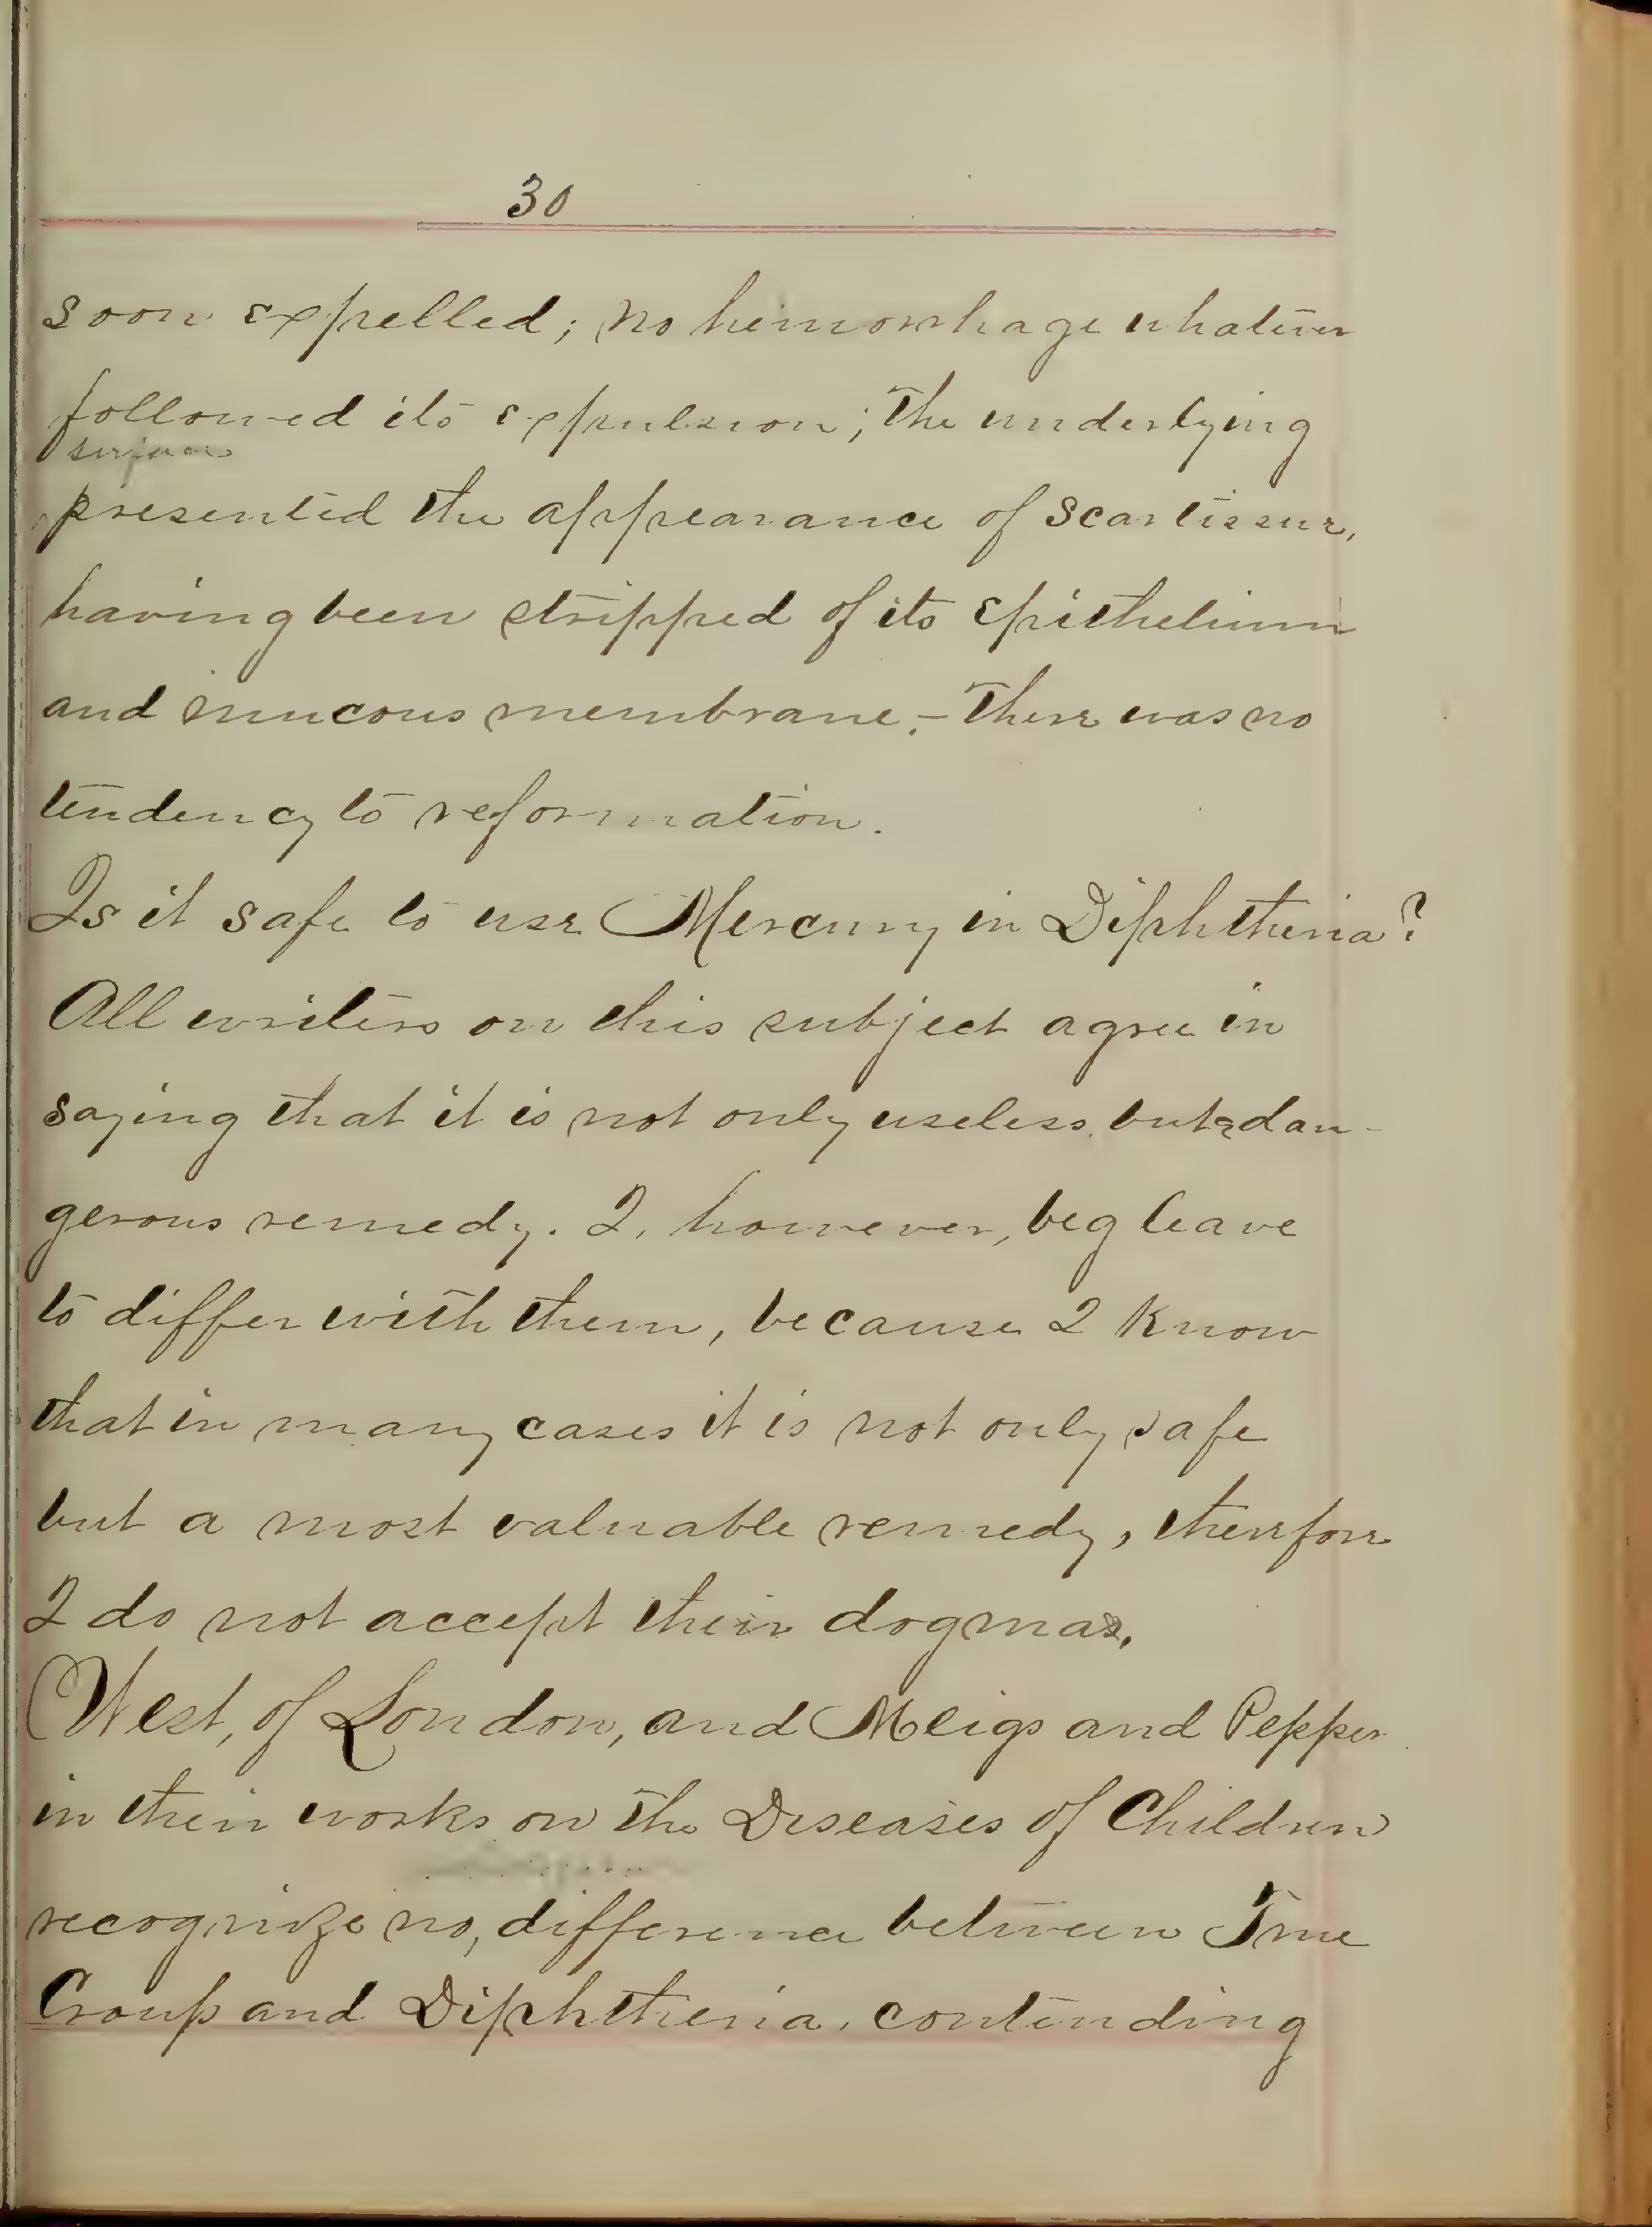 30
soon expelled; no hemorrhage whatever
followed its expulsion; the underlying
surface
presented the appearance of scar tissue,
having been stripped of its epithelium
and mucous membrane. - There was no
tendency to reformation.
Is it safe to use Mercury in Diphtheria?
All writers on this subject agree in
saying that it is not only useless, but a dan-
gerous remedy. I, however, beg leave
to differ with them, because I know
that in many cases it is not only safe
but a most valuable remedy, therefore
I do not accept their dogmas.
West, of London, and Meigs and Pepper
in their works on the Diseases of Children
recognize no, difference between True
Croup and Diphtheria, contending